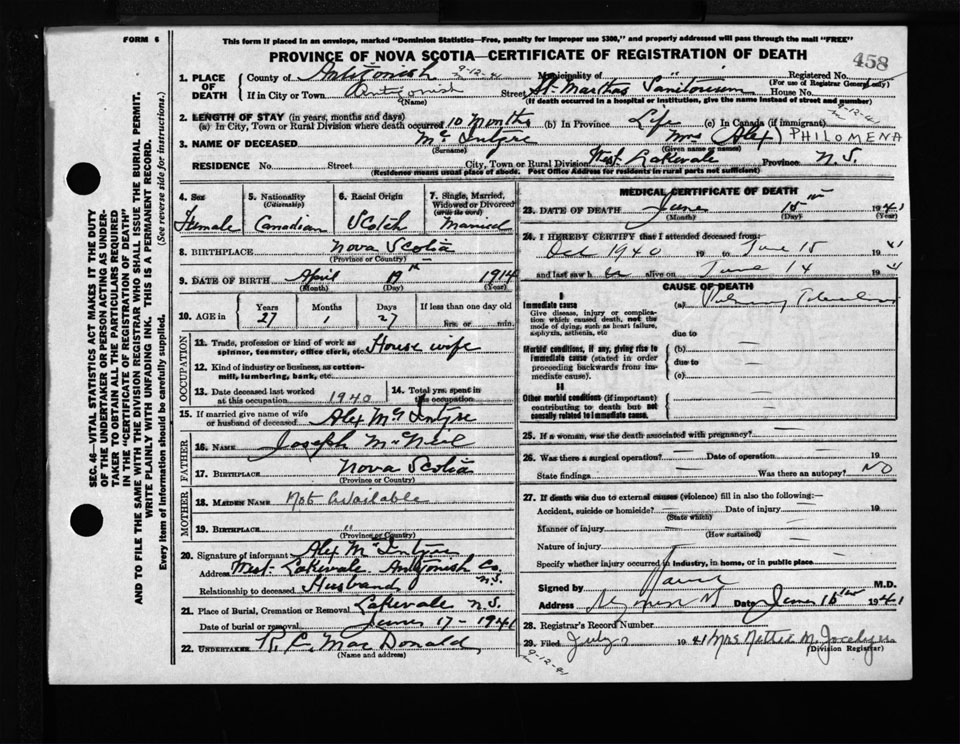 FORM 6
This form if placed in an envelope, marked "Dominion Statistics—Free, penalty for improper use $300," and properly addressed will pass through the mail "FREE"
PROVINCE OF NOVA SCOTIA—CERTIFICATE OF REGISTRATION OF DEATH
458
1. PLACE OF DEATH
County of Antigonish 9-12-41 Municipality of " Registered No.
(For use of Registrar General only)
If in City or Town Antigonish Street St. Marthas Sanitorium House No.
(Name) (If death occurred in a hospital or institution, give the name instead of street and number)
2. LENGTH OF STAY (in years, months and days)
(a) In City, Town or Rural Division where death occurred 10 Months (b) In Province Life (c) In Canada (if immigrant)
9-12-41
3. NAME OF DECEASED Mc Intyre Mrs (Alex) PHILOMENA
(Surname) (Given name or names)
RESIDENCE No. Street City, Town or Rural Division West Lakevale Province N.S.
(Residence means usual place of abode. Post Office Address for residents in rural parts not sufficient)
4. Sex
Female
5. Nationality
(Citizenship)
Canadian
6. Racial Origin
Scotch
7. Single, Married, Widowed or Divorced
(write the word)
Married
8. BIRTHPLACE Nova Scotia
(Province or Country)
9. DATE OF BIRTH April 19th 1914
(Month) (Day) (Year)
10. AGE in
Years 27
Months 1
Days 27
If less than one day old
hrs. or min.
OCCUPATION
11. Trade, profession or kind of work as spinner, teamster, office clerk, etc. House wife
12. Kind of industry or business, as cotton-mill, lumbering, bank, etc.
13. Date deceased last worked at this occupation 1940
14. Total yrs. spent in this occupation
15. If married give name of wife or husband of deceased Alex McIntyre
FATHER
16. NAME Joseph McNeil
17. BIRTHPLACE Nova Scotia
(Province or Country)
MOTHER
18. MAIDEN NAME Not available
19. BIRTHPLACE "
(Province or Country)
20. Signature of informant Alex McIntyre
Address West Lakevale Antigonish Co. N.S.
Relationship to deceased Husband
21. Place of Burial, Cremation or Removal Lakevale N.S.
Date of burial or removal June 17 - 1941
22. UNDERTAKER R. C. MacDonald
(Name and address)
MEDICAL CERTIFICATE OF DEATH
23. DATE OF DEATH June 15th 1941
(Month) (Day) (Year)
24. I HEREBY CERTIFY that I attended deceased from:
Oct 1940 19 to June 15 1941
and last saw her alive on June 14 1941
CAUSE OF DEATH
I
Immediate cause
Give disease, injury or complication which caused death, not the mode of dying, such as heart failure, asphyxia, asthenia, etc
(a) Pulmonary Tuberculosis
due to
Morbid conditions, if any, giving rise to immediate cause (stated in order proceeding backwards from immediate cause).
(b) —
due to
(c) —
II
Other morbid conditions (if important) contributing to death but not causally related to immediate cause.
25. If a woman, was the death associated with pregnancy? —
26. Was there a surgical operation? — Date of operation — 19
State findings — Was there an autopsy? NO
27. If death was due to external causes (violence) fill in also the following:—
Accident, suicide or homicide? — Date of injury — 19
(State which)
Manner of injury —
(How sustained)
Nature of injury —
Specify whether injury occurred in industry, in home, or in public place.
Signed by M.D.
Address Date June 16 1941
28. Registrar's Record Number
29. Filed July 2 1941 Mrs
(Division Registrar)
9-12-41
SEC. 46—VITAL STATISTICS ACT MAKES IT THE DUTY
OF THE UNDERTAKER OR PERSON ACTING AS UNDER-
TAKER TO OBTAIN ALL THE PARTICULARS REQUIRED
IN THE "CERTIFICATE OF REGISTRATION OF DEATH"
AND TO FILE THE SAME WITH THE DIVISION REGISTRAR WHO SHALL ISSUE THE BURIAL PERMIT.
WRITE PLAINLY WITH UNFADING INK. THIS IS A PERMANENT RECORD.
Every item of information should be carefully supplied. (See reverse side for instructions.)